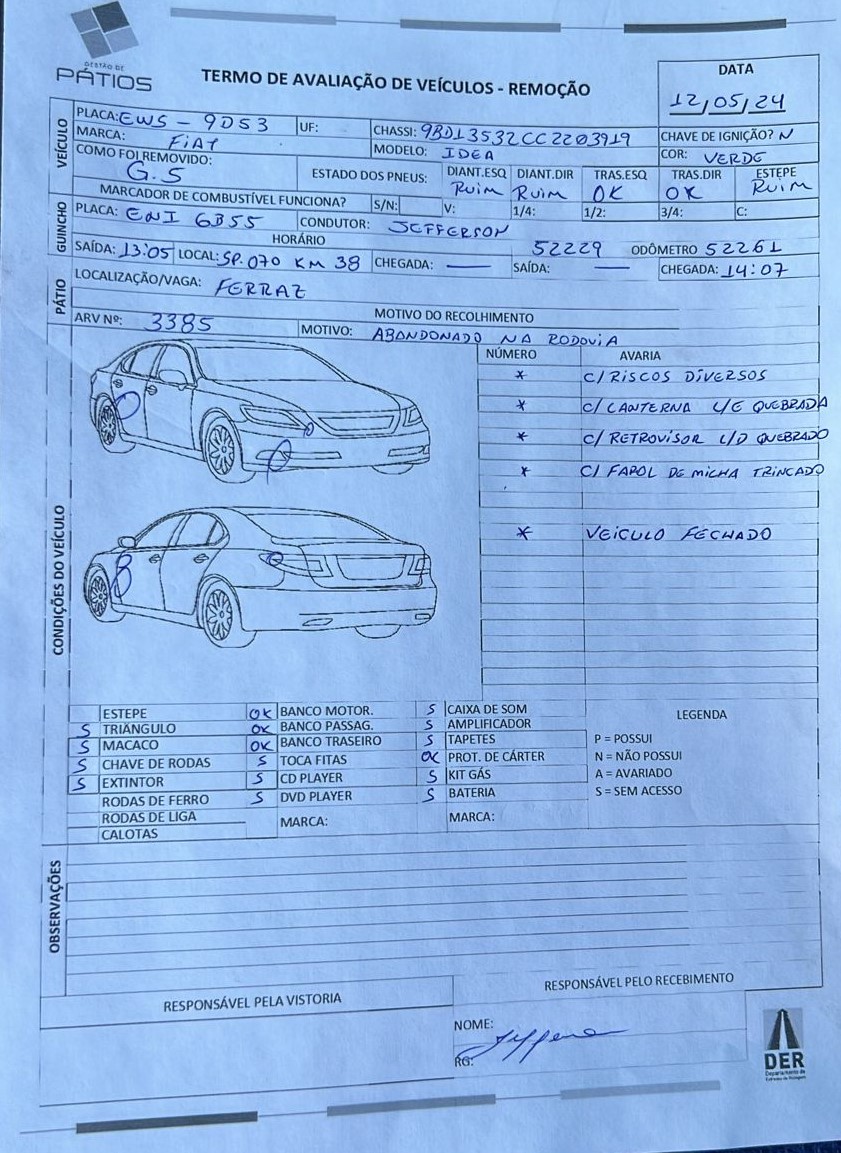 GESTÃO DE
PÁTIOS
TERMO DE AVALIAÇÃO DE VEÍCULOS - REMOÇÃO
DATA
12/05/24
VEÍCULO
PLACA: EWS - 9D53 UF: CHASSI: 9BD13532CC2203919 CHAVE DE IGNIÇÃO? N
MARCA: FIAT MODELO: IDEA COR: VERDE
COMO FOI REMOVIDO: G.S ESTADO DOS PNEUS: DIANT.ESQ RUIM DIANT.DIR RUIM TRAS.ESQ OK TRAS.DIR OK ESTEPE RUIM
MARCADOR DE COMBUSTÍVEL FUNCIONA? S/N: V: 1/4: 1/2: 3/4: C:
GUINCHO
PLACA: ENI 6B55 CONDUTOR: JEFFERSON
HORÁRIO 52229 ODÔMETRO 52261
SAÍDA: 13:05 LOCAL: SP.070 KM 38 CHEGADA: — SAÍDA: — CHEGADA: 14:07
PÁTIO
LOCALIZAÇÃO/VAGA: FERRAZ
MOTIVO DO RECOLHIMENTO
ARV Nº: 3385 MOTIVO: ABANDONADO NA RODOVIA
CONDIÇÕES DO VEÍCULO
NÚMERO AVARIA
* C/ RISCOS DIVERSOS
* C/ LANTERNA L/E QUEBRADA
* C/ RETROVISOR L/D QUEBRADO
* C/ FAROL DE MILHA TRINCADO
* VEICULO FECHADO
ESTEPE OK BANCO MOTOR. S CAIXA DE SOM LEGENDA
S TRIÂNGULO OK BANCO PASSAG. S AMPLIFICADOR
S MACACO OK BANCO TRASEIRO S TAPETES P = POSSUI
S CHAVE DE RODAS S TOCA FITAS OK PROT. DE CÁRTER N = NÃO POSSUI
S EXTINTOR S CD PLAYER S KIT GÁS A = AVARIADO
RODAS DE FERRO S DVD PLAYER S BATERIA S = SEM ACESSO
RODAS DE LIGA MARCA: MARCA:
CALOTAS
OBSERVAÇÕES
RESPONSÁVEL PELA VISTORIA RESPONSÁVEL PELO RECEBIMENTO
NOME:
RG:
DER